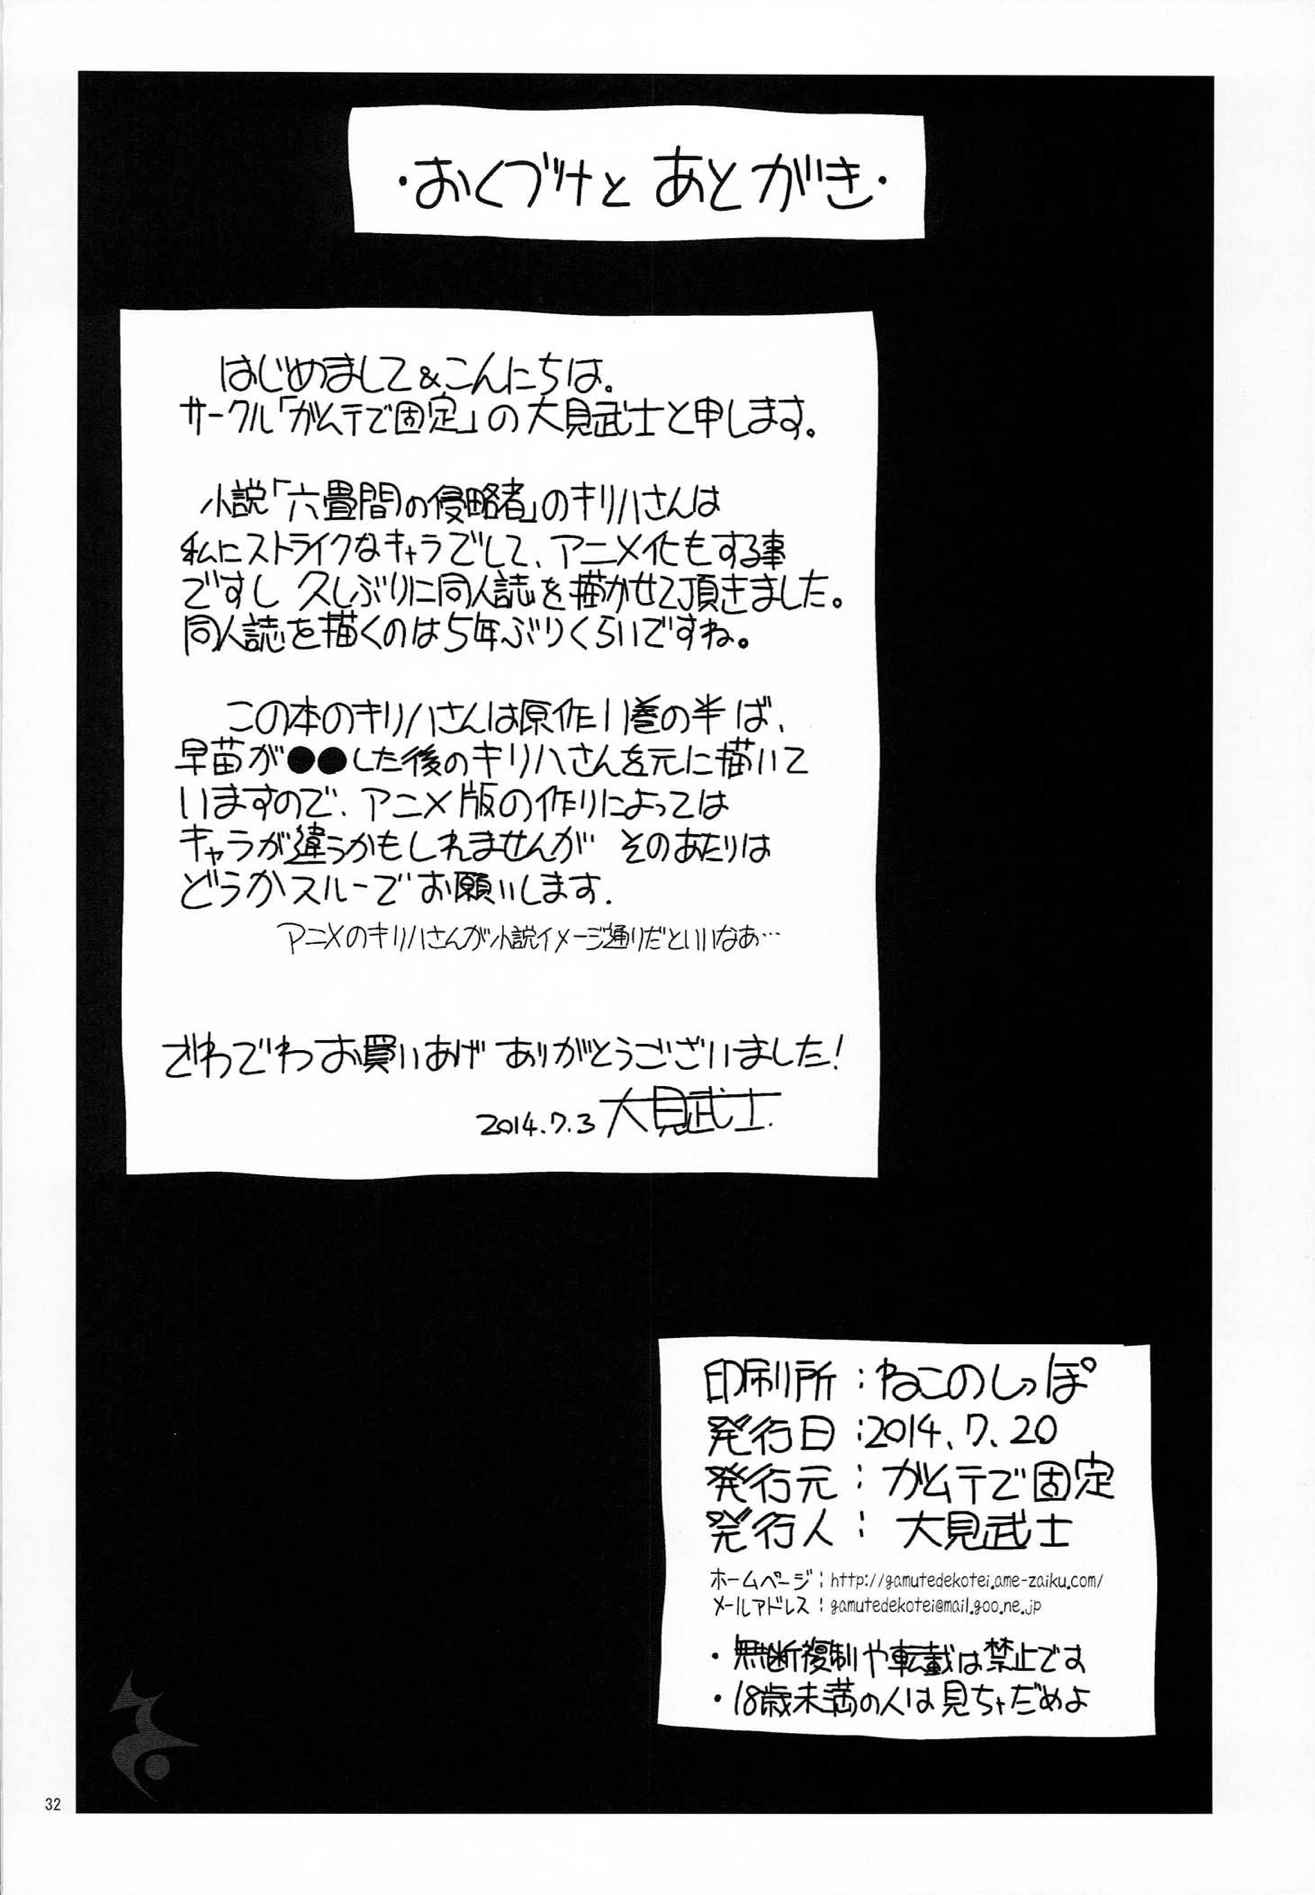 ・おくづけと あとがき・
はじめまして＆こんにちは。
サークル「ガムテで固定」の大見武士と申します。
小説「六畳間の侵略者」のキリハさんは
私にストライクなキャラでして、アニメ化もする事
ですし 久しぶりに同人誌を描かせて頂きました。
同人誌を描くのは5年ぶりくらいですね。
この本のキリハさんは原作11巻の半ば、
早苗が●●した後のキリハさんを元に描いて
いますので、アニメ版の作りによっては
キャラが違うかもしれませんが そのあたりは
どうかスルーでお願いします.
アニメのキリハさんが小説イメージ通りだといいなあ…
ざわでわお買いあげ ありがとうございました！
2014.7.3 大見武士.
印刷所：ねこのしっぽ
発行日：2014.7.20
発行元：ガムテで固定
発行人：大見武士
ホームページ：http://gamutedekotei.ame-zaiku.com/
メールアドレス：gamutedekotei@mail.goo.ne.jp
・無断複制や転載は禁止です
・18歳未満の人は見ちゃだめよ
32